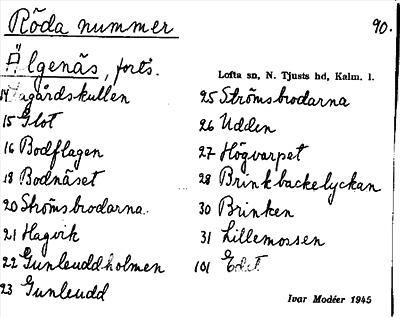 Röda nummer 90.
Älgenäs, forts.
Lofta sn, N. Tjusts hd, Kalm. l.
14 Hagårdskullen
15 Glot
16 Bodflagen
18 Bodnäset
20 Strömsbrodarna
21 Hagvik
22 Gunleuddholmen
23 Gunleudd
25 Strömsbrodarna
26 Udden
27 Högvarpet
28 Brinkbackelyckan
30 Brinken
31 Lillemossen
101 Edet
Ivar Modéer 1945